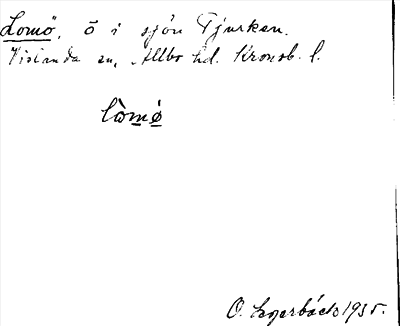 Lomö, ö i sjön Tjurken.
Vislanda sn, Allbo hd. Kronob. l.
lòmö
O. Lagerbäck 1935.